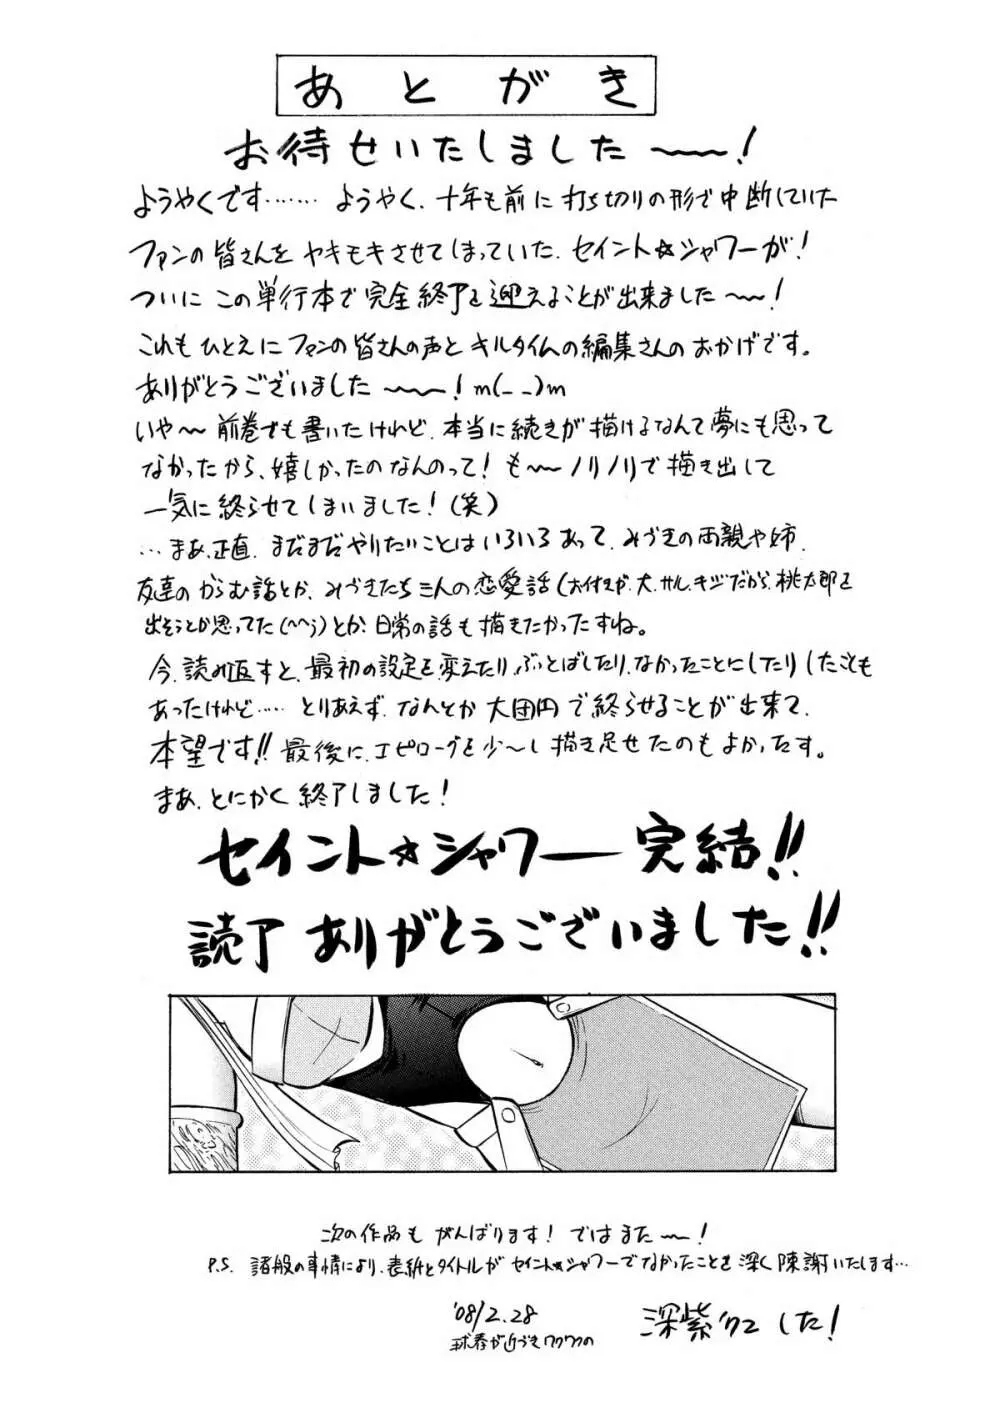 あとがき
お待せいたしました〜〜!
ようやくです……ようやく、十年も前に打ち切りの形で中断していた
ファンの皆さんをヤキモキさせてしまっていた、セイント☆シャワーが!
ついにこの単行本で完全終了を迎えることが出来ました〜〜!
これもひとえにファンの皆さんの声とキルタイムの編集さんのおかげです。
ありがとうございました〜〜〜!m(_ _)m
いや〜〜前巻でも書いたけれど、本当に続きが描けるなんて夢にも思って
なかったから、嬉しかったのなんのって!も〜〜ノリノリで描き出して
一気に終らせてしまいました!(笑)
…まあ、正直、まだまだやりたいことはいろいろあって、みづきの両親や姉、
友達のからむ話とか、みづきたち三人の恋愛話(お付きが、犬、サル、キジだから、桃太郎を
出そうとか思ってた(^^;)とか、日常の話も描きたかったすね。
今、読み返すと、最初の設定を変えたり、ぶっとばしたり、なかったことにしたりしたこども
あったけれど……とりあえず、なんとか大団円で終らせることが出来て、
本望です!!最後に、エピローグを少〜し描き足せたのもよかったす。
まあ、とにかく終了しました!
セイント☆シャワー完結!!
読了ありがとうございました!!
次の作品もがんばります!ではまた〜〜!
P.S. 諸般の事情により、表紙とタイトルがセイント☆シャワーでなかったことを深く陳謝いたします…
'08/2.28
球春が近づきワクワクの
深紫 でした!